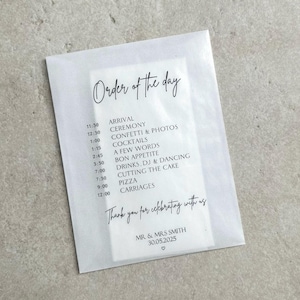 Order of the day
11:30 ARRIVAL
12:30 CEREMONY
1:00 CONFETTI & PHOTOS
1:15 COCKTAILS
2:45 A FEW WORDS
3:30 BON APPETITE
7:00 DRINKS, DJ & DANCING
7:30 CUTTING THE CAKE
9:00 PIZZA
12:00 CARRIAGES
Thank you for celebrating with us
MR. & MRS SMITH
30.05.2025